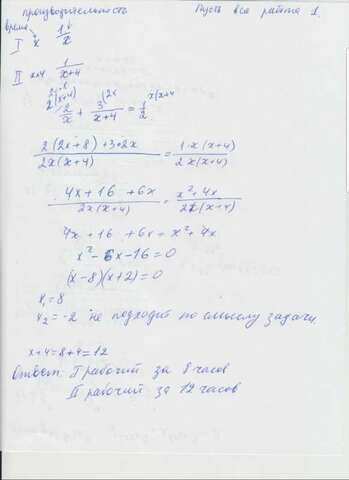 производительность Пусть вся работа 1.
время
I x 1/x
II x+4 1/(x+4)
2/x + 3/(x+4) = 1/2
(2(2x+8)+3·2x)/(2x(x+4)) = (1·x(x+4))/(2x(x+4))
(4x+16+6x)/(2x(x+4)) = (x²+4x)/(2x(x+4))
4x+16+6x=x²+4x
x²-6x-16=0
(x-8)(x+2)=0
x₁=8
x₂=-2 не подходит по смыслу задачи.
x+4=8+4=12
Ответ: I рабочий за 8 часов
II рабочий за 12 часов